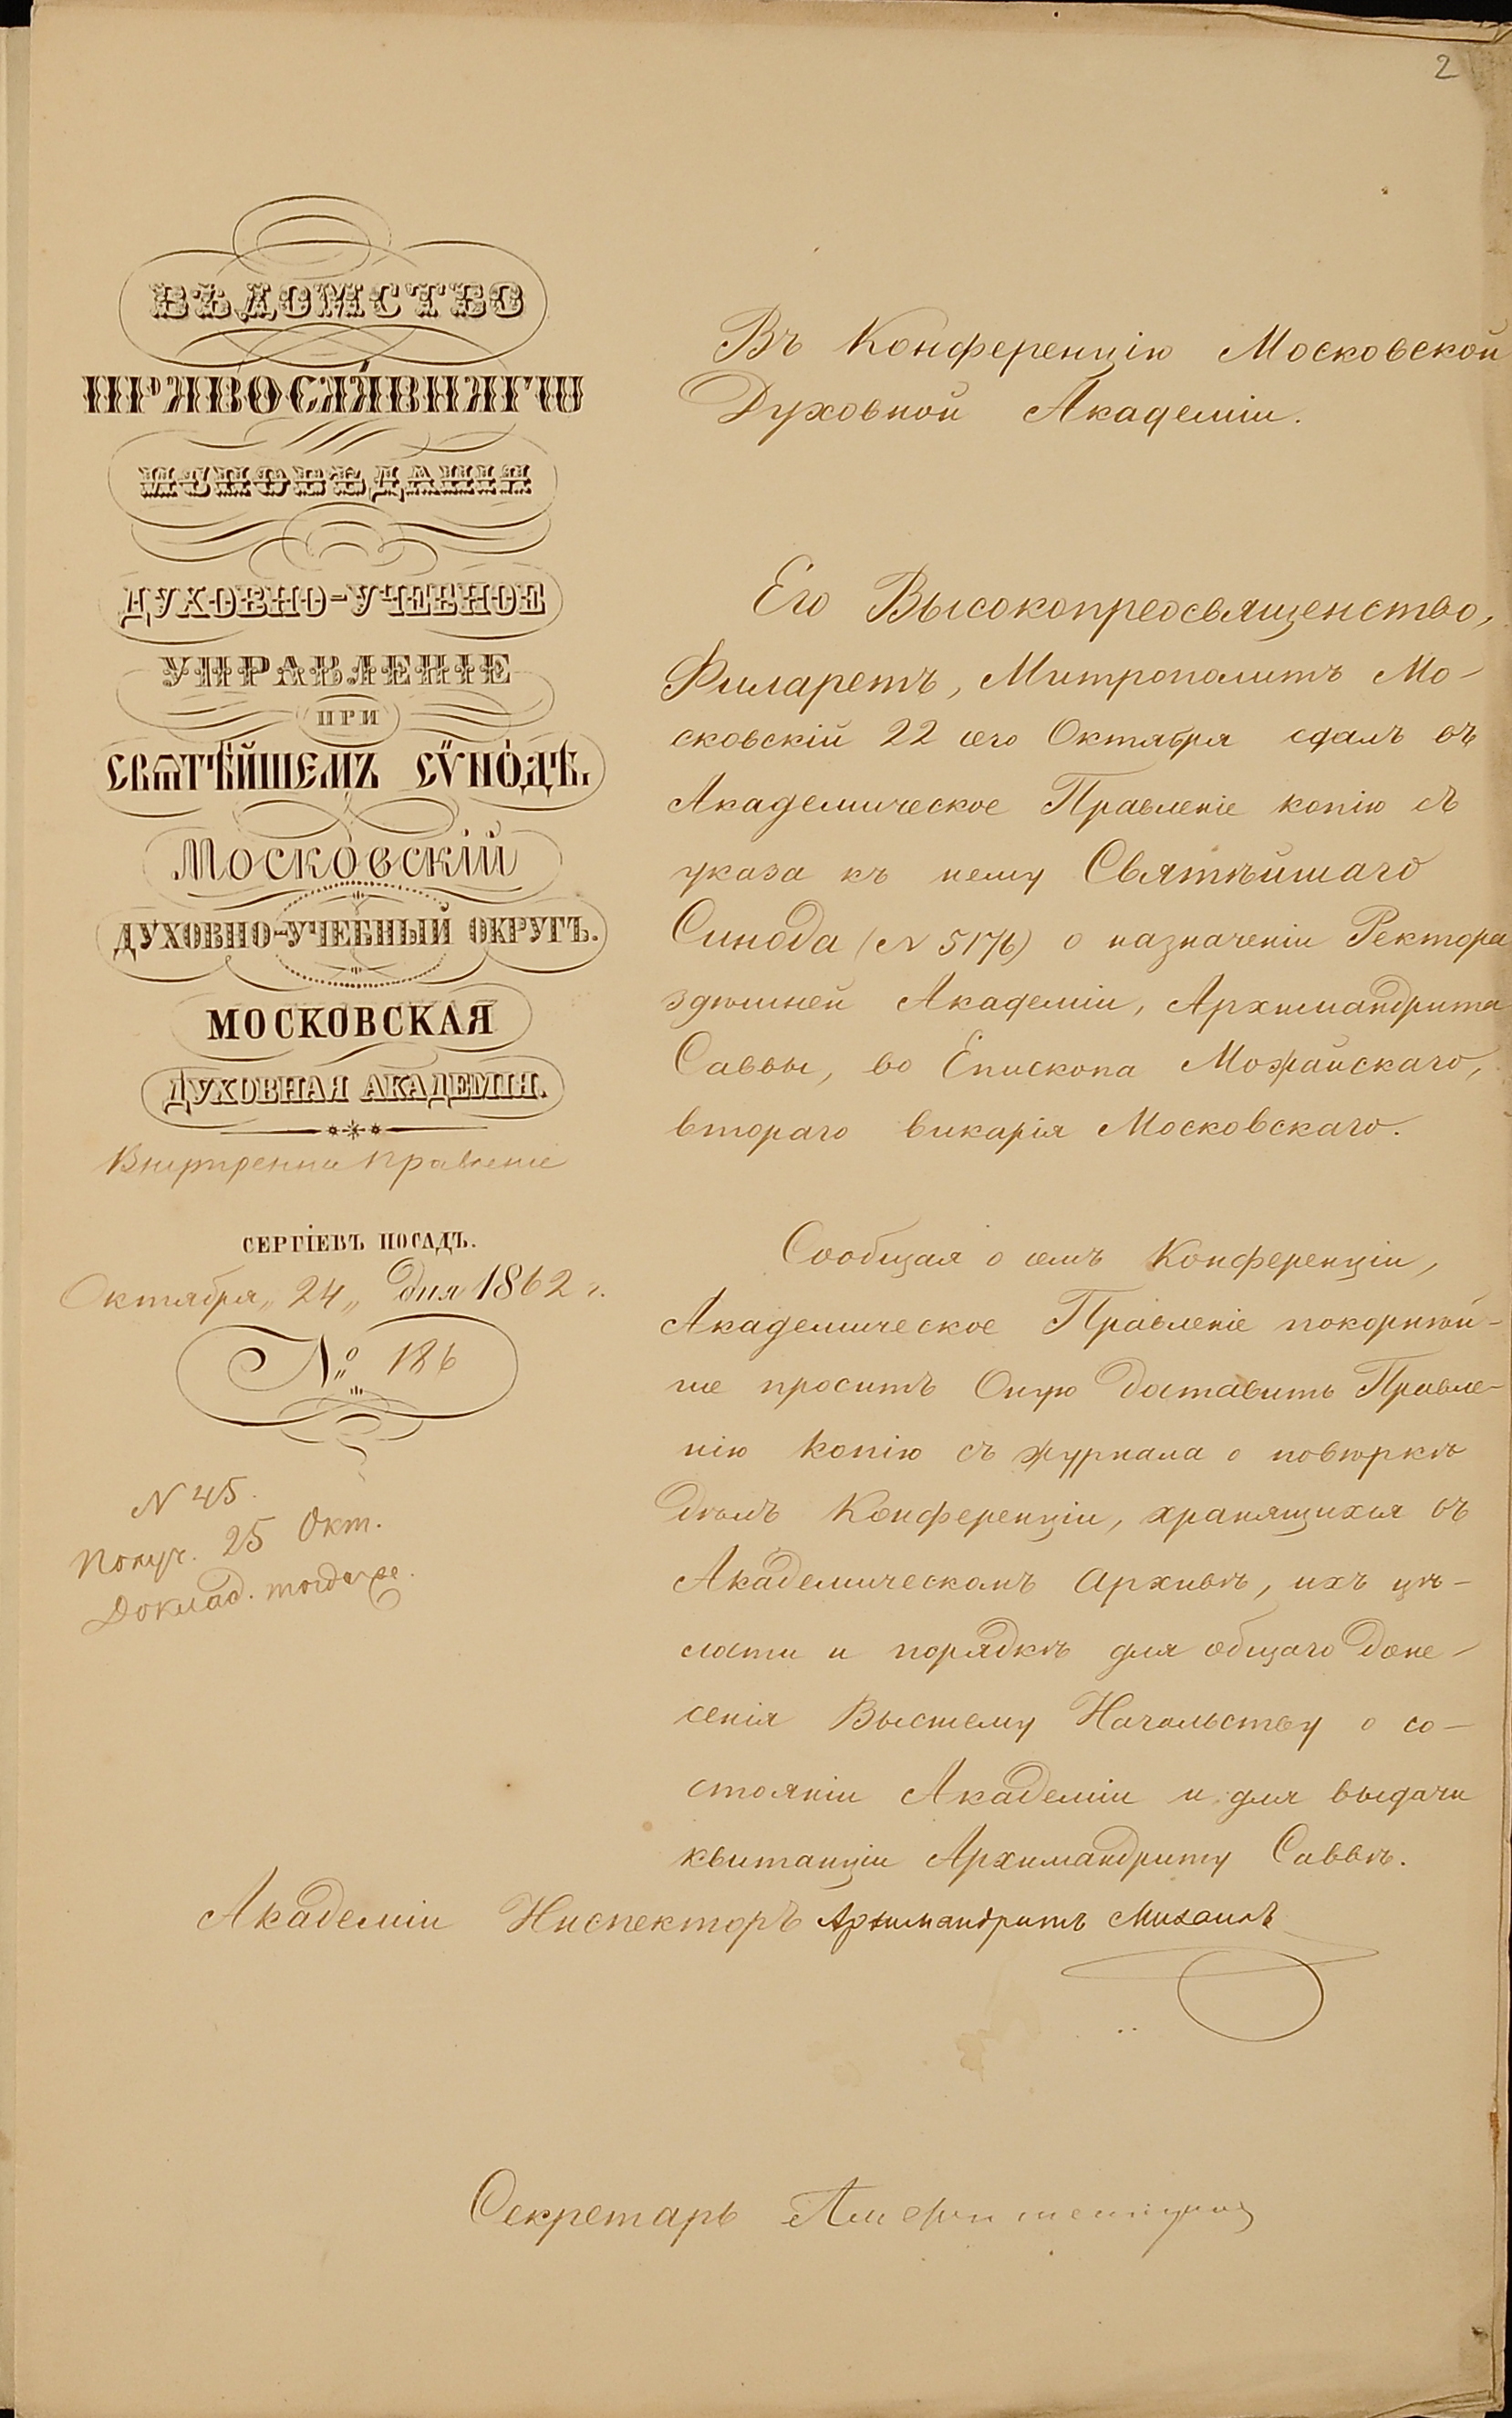 2
ВѢДОМСТВО
ПРАВОСЛАВНАГѠ
ИСПОВѢДАНІЯ
ДУХОВНО-УЧЕБНОЕ
УПРАВЛЕНІЕ
ПРИ
СВѦТѢЙШЕМЪ СѴНОДѢ.
МОСКОВСКІЙ
ДУХОВНО-УЧЕБНЫЙ ОКРУГЪ.
МОСКОВСКАЯ
ДУХОВНАЯ АКАДЕМІЯ.
Правленіе
СЕРГІЕВЪ ПОСАДЪ.
Октября „24„ дня 1862 г.
№ 186
N 45.
Получ. 25 Окт.
Доклад. тогда же.
Въ Конференцію Московской
Духовной Академіи.
Его Высокопреосвященство,
Филаретъ, Митрополитъ Мо-
сковскій 22 сего Октября сдалъ въ
Академическое Правленіе копію съ
указа къ нему Святѣйшаго
Синода (N 5176) о назначеніи Ректора
здѣшней Академіи, Архимандрита
Саввы, во Епископа Можайскаго,
втораго викарія Московскаго.
Сообщая о семъ Конференціи,
Академическое Правленіе покорнѣй-
ше проситъ Оную доставить Правле-
нію копію съ журнала о повѣркѣ
дѣлъ Конференціи, хранящихся въ
Академическомъ Архивѣ, ихъ цѣ-
лости и порядкѣ для общаго доне-
сенія Высшему Начальству о со-
стояніи Академіи и для выдачи
квитанціи Архимандриту Саввѣ.
Академіи Инспекторъ Архимандритъ Михаилъ
Секретарь